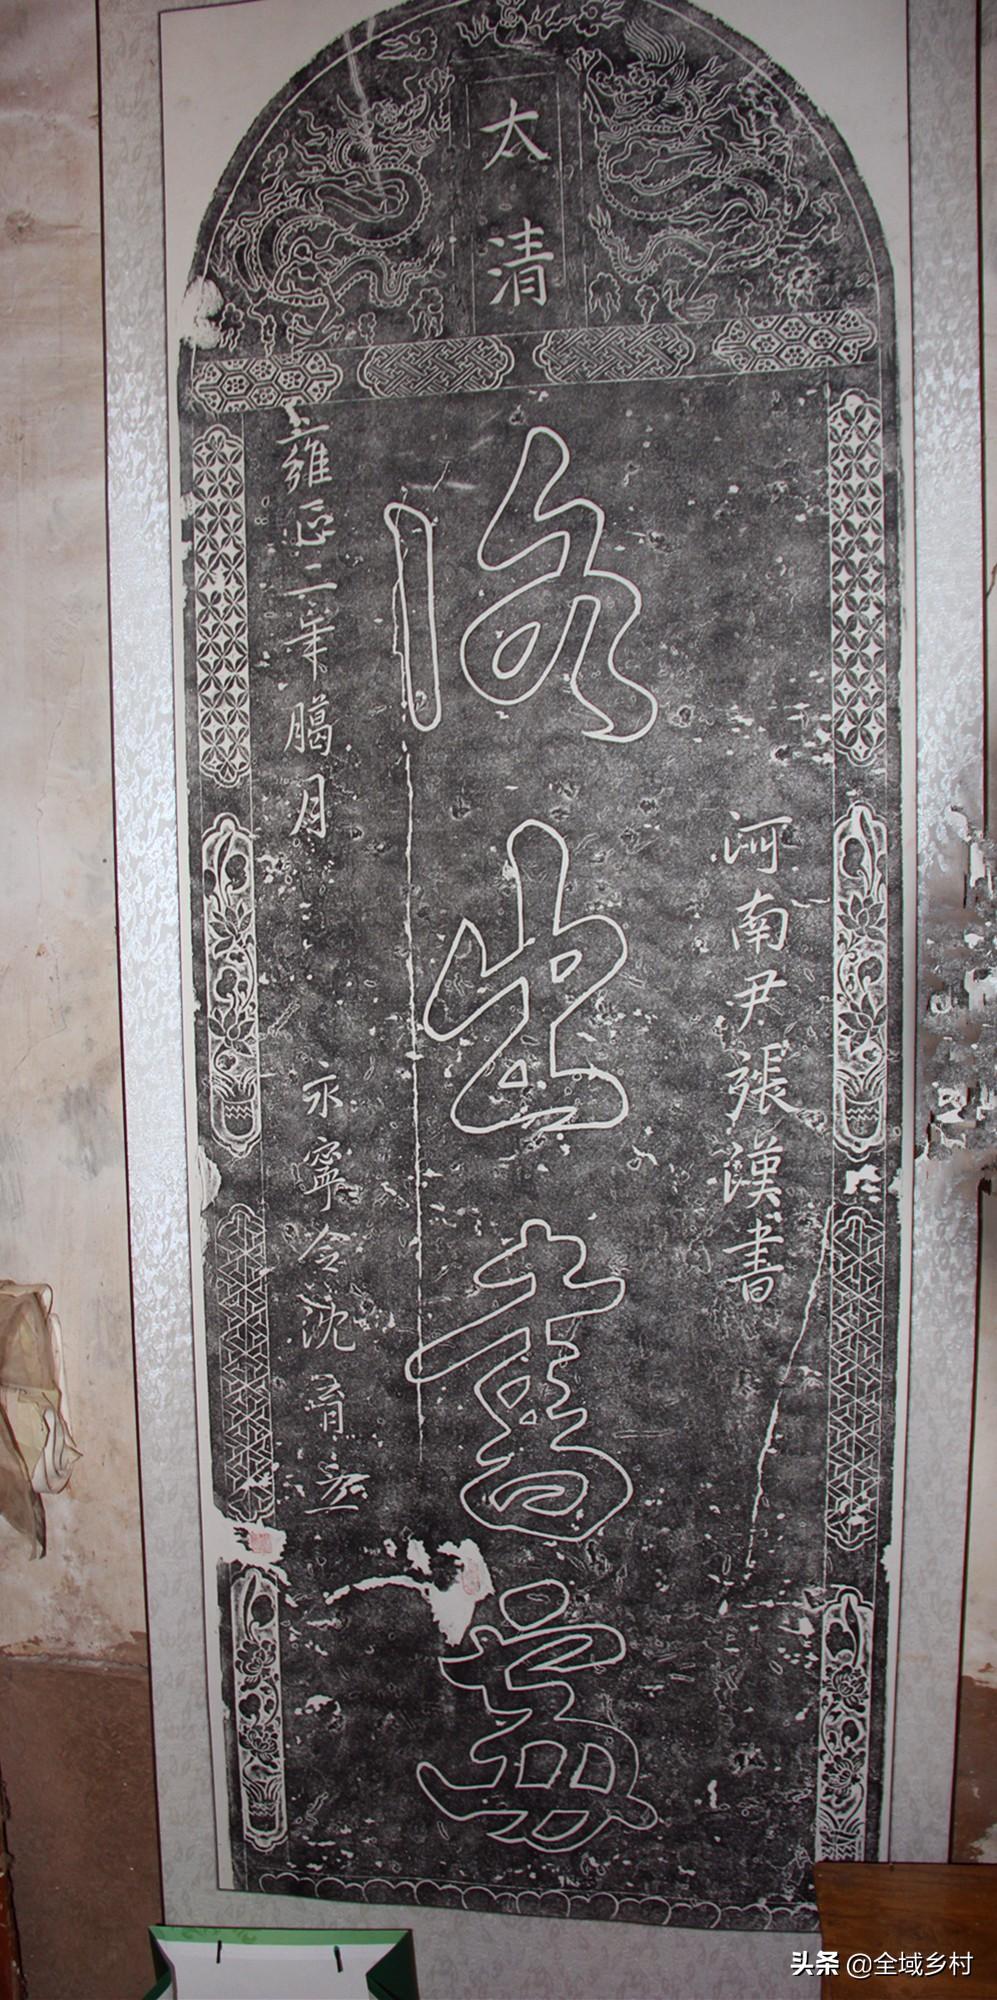 大清
洛出書處
河南尹張漢書
雍正二年臈月
永寧令沈育立
头条 @全域乡村